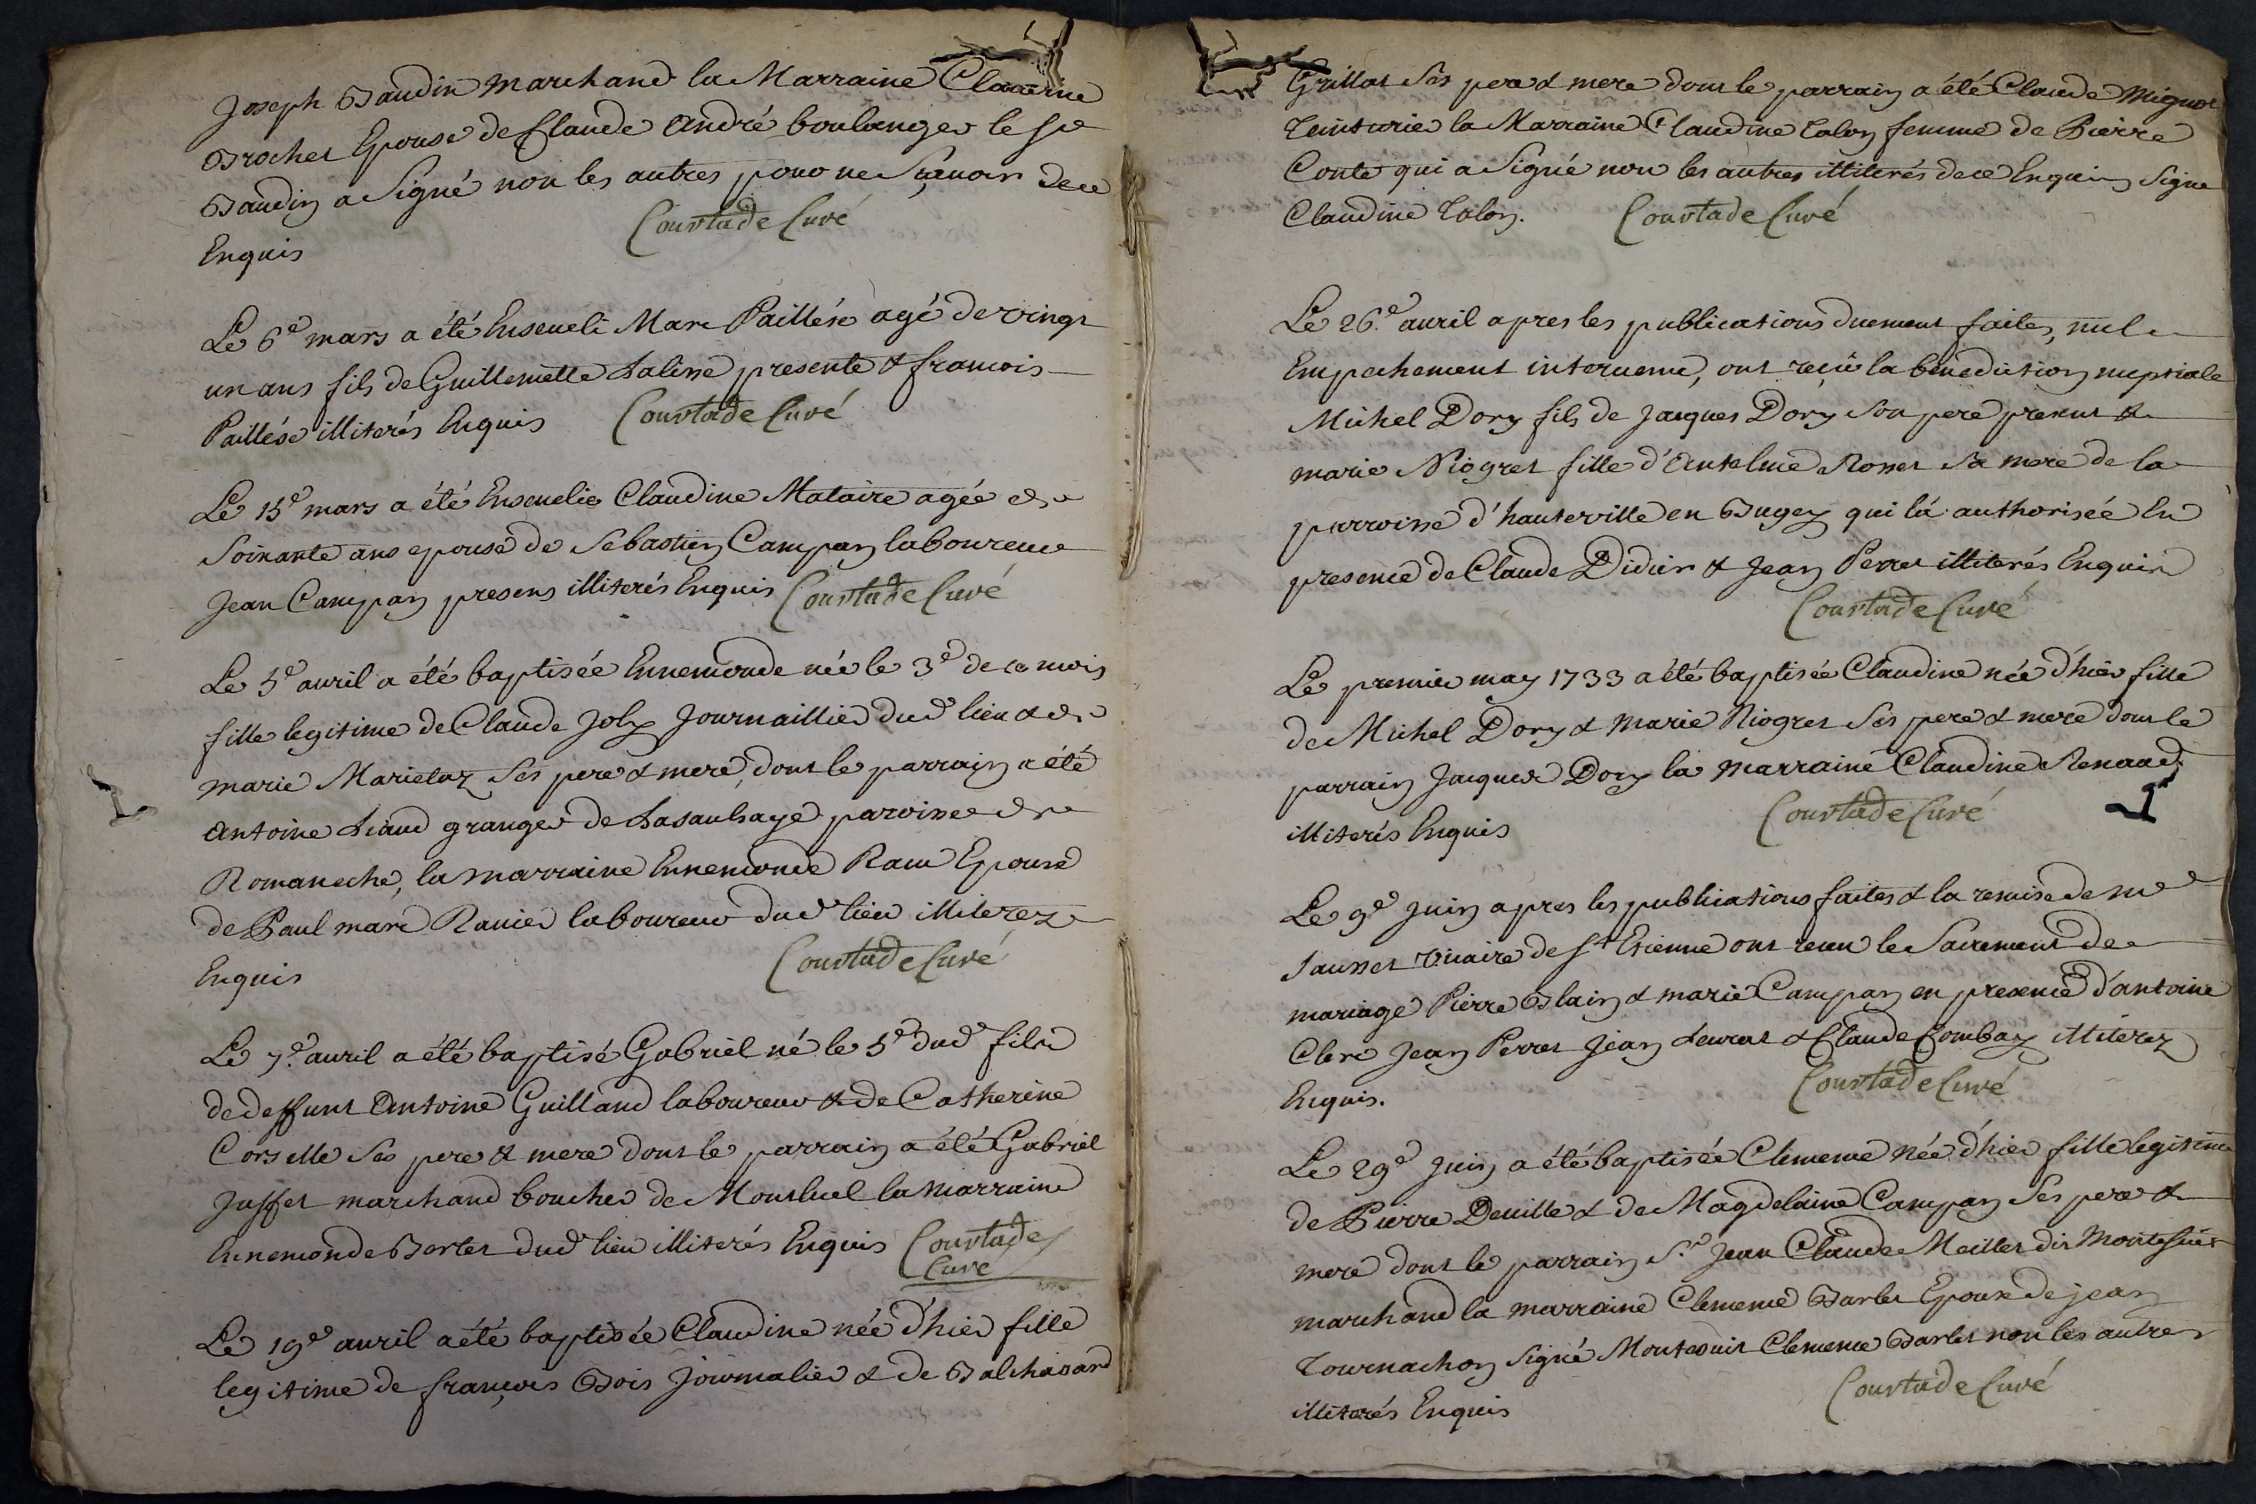 Joseph Baudin marchand la Marraine Claudine
Brochet Epouse de Claude André boulanger le Sr
Baudin a Signé non les autres pour ne Sçavoir de ce
Enquis Courtade Curé
Le 6e mars a été Enseveli Marc Paillése agé de vingt
un ans fils de Guillemette presente & francois
Paillése illiterés Enquis Courtade Curé
Le 15e mars a été Ensevelie Claudine Mataire agée de
Soixante ans epouse de Sebastien Campan laboureur
Jean Campan presens illiterés Enquis Courtade Curé
Le 5e avril a été baptisée Ennemonde née le 3e de ce mois
fille legitime de Claude Joly Journaillier dud lieu & de
marie Marietaz Ses pere & mere, dont le parrain a été
antoine granger de Lasaulsaye paroisse de
Romaneche, la marraine Ennemonde Epouse
de Paul marc Ranier laboureur dud lieu illiterez
Enquis Courtade Curé
Le 7e avril a été baptisé Gabriel né le 5e dud fils
de deffunt Antoine Guilland laboureur & de Catherine
Corselle Ses pere & mere dont le parrain a été Gabriel
Juffet marchand boucher de Montluel la marraine
Ennemonde Berlet dud lieu illiterés Enquis Courtade
Curé
Le 19e avril a été baptisée Claudine née d'hier fille
legitime de françois Bois Journalier & de Balthasard
Grillat Ses pere & mere dont le parrain a été Claude Mignot
Teinturier la Marraine Claudine Talon femme de Pierre
Conte qui a Signé non les autres illiterés de ce Enquis Signe
Claudine Talon. Courtade Curé
Le 26.e avril apres les publications duement faites, nul
Empechement intervenu, ont reçu la benediction nuptiale
Michel Dory fils de Jacques Dory Son pere present &
marie Niogret fille d'Antelme Rosset Sa mere de la
parroisse d'hauteville en Bugey qui l'a authorisée En
presence de Claude Didier & Jean Perret illiterés Enquis
Courtade Curé
Le premier may 1733 a été baptisée Claudine née d'hier fille
de Michel Dory & Marie Niogret Ses pere & mere dont le
parrain Jacques Dory la marraine Claudine Renaud
illiterés Enquis Courtade Curé
Le 9e Juin apres les publications faites & la remise de mre
Jausset vicaire de St Etienne ont receu le Sacrement de
mariage Pierre Blain & marie Campan en presence d'antoine
Clerc Jean Perret Jean & Claude Combaz illiterez
Enquis. Courtade Curé
Le 29e Juin a été baptisée Clemence née d'hier fille legitime
de Pierre Deville & de Magdelaine Campan Ses pere &
mere dont le parrain S.r Jean Claude Meillet dit Montesuit
marchand la marraine Clemence Barlet Epouse de jean
Tournachon Signé Montesuit Clemence Barlet non les autres
illiterés Enquis Courtade Curé